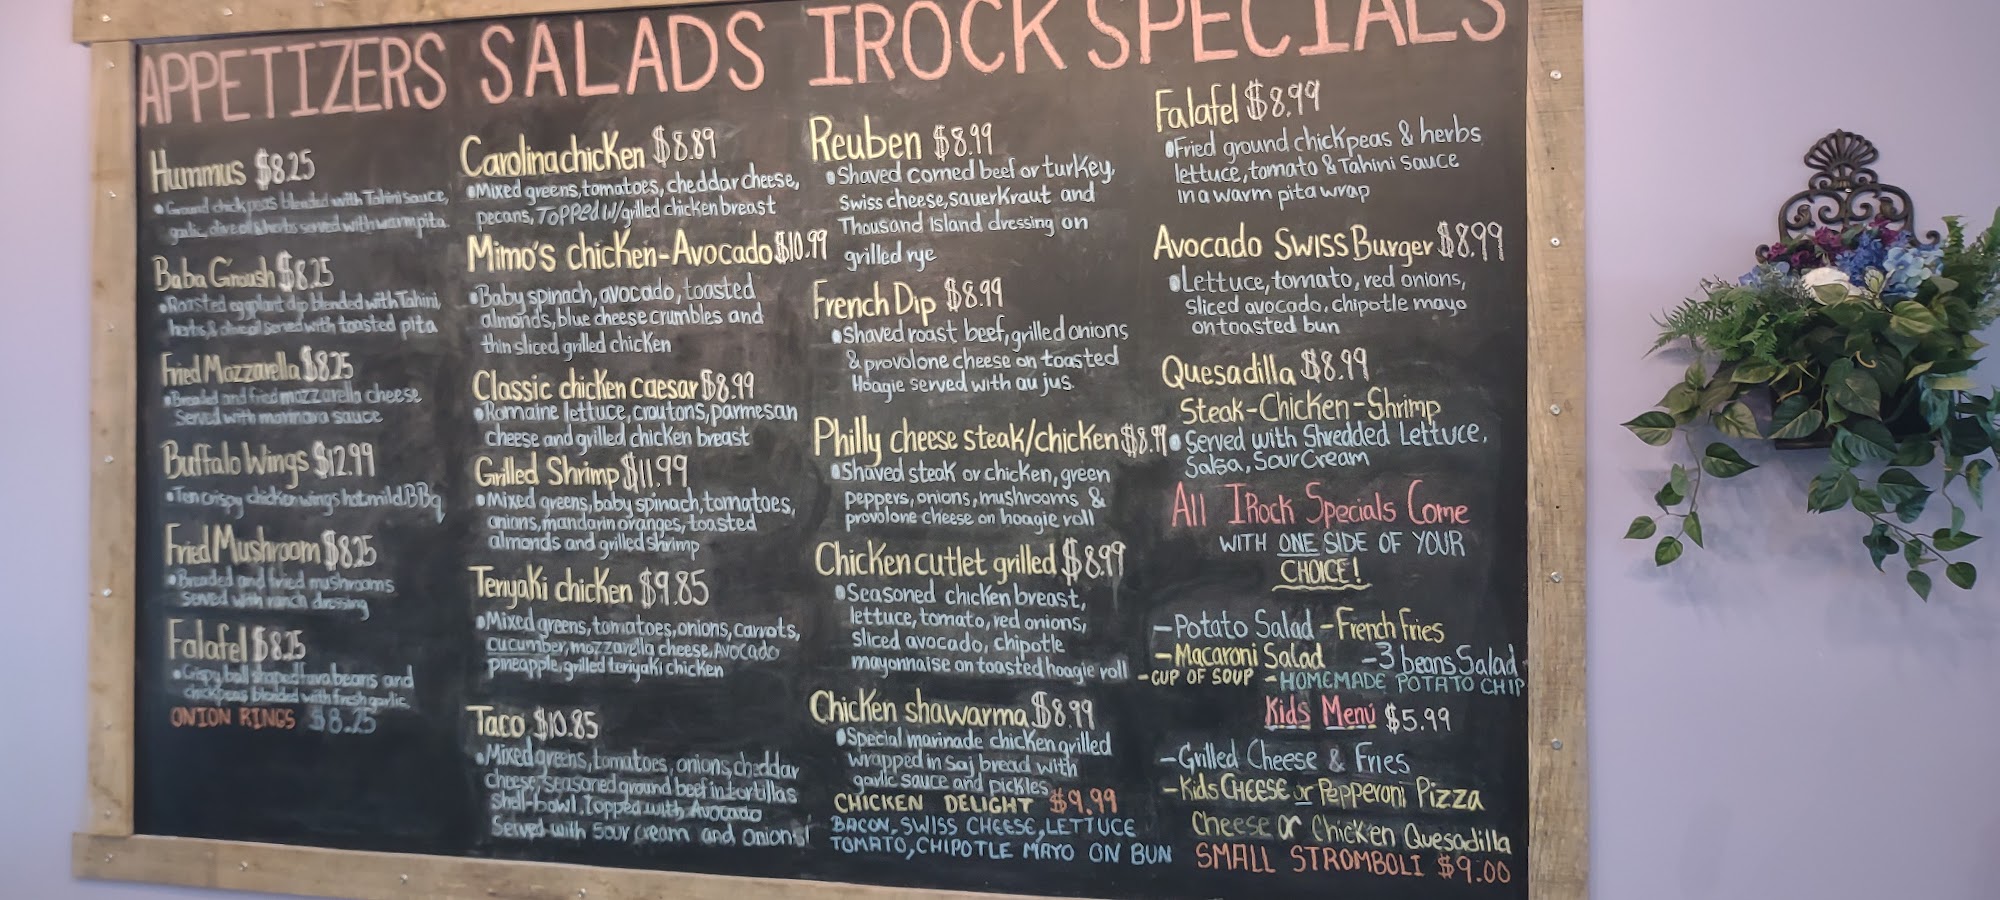 APPETIZERS
Hummus $8.25
• Ground chick peas blended with Tahini sauce,
garlic, olive oil & herbs served with warm pita
Baba Groush $8.25
• Roasted eggplant dip blended with Tahini,
herbs, & olive oil served with toasted pita
Fried Mozzarella $8.25
• Breaded and fried mozzarella cheese
Served with marinara sauce
Buffalo Wings $12.99
• Ten crispy chicken wings hot, mild, BBq
Fried Mushroom $8.25
• Breaded and fried mushrooms
Served with ranch dressing
Falafel $8.25
• Crispy ball shaped fuva beans and
chickpeas blended with fresh garlic,
ONION RINGS $8.25
SALADS
Carolina chicken $8.89
• Mixed greens, tomatoes, cheddar cheese,
pecans, TOPPED W/ grilled chicken breast
Mimo's chicken-Avocado $10.99
• Baby spinach, avocado, toasted
almonds, blue cheese crumbles and
thin sliced grilled chicken
Classic chicken caesar $8.99
• Romaine lettuce, croutons, parmesan
cheese and grilled chicken breast
Grilled Shrimp $11.99
• Mixed greens, baby spinach, tomatoes,
onions, mandarin oranges, toasted
almonds and grilled shrimp
Teriyaki chicken $9.85
• Mixed greens, tomatoes, onions, carrots,
cucumber, mozzarella cheese, Avocado
pineapple, grilled teriyaki chicken
Taco $10.85
• Mixed greens, tomatoes, onions, cheddar
cheese, seasoned ground beef in tortillas
shell-bowl. Topped with Avocado
Served with Sour cream and onions!
IROCK SPECIALS
Reuben $8.99
• Shaved corned beef or turkey,
Swiss cheese, sauerkraut and
Thousand Island dressing on
grilled rye
French Dip $8.99
• Shaved roast beef, grilled onions
& provolone cheese on toasted
Hoagie served with au jus.
Philly cheese steak/chicken $8.99
• Shaved steak or chicken, green
peppers, onions, mushrooms &
provolone cheese on hoagie roll
Chicken cutlet grilled $8.99
• Seasoned chicken breast,
lettuce, tomato, red onions,
sliced avocado, chipotle
mayonnaise on toasted hoagie roll
Chicken shawarma $8.99
• Special marinade chicken grilled
wrapped in saj bread with
garlic sauce and pickles
CHICKEN DELIGHT $9.99
BACON, SWISS CHEESE, LETTUCE
TOMATO, CHIPOTLE MAYO ON BUN
Falafel $8.99
• Fried ground chickpeas & herbs
lettuce, tomato & Tahini sauce
In a warm pita wrap
Avocado SWISS Burger $8.99
• Lettuce, tomato, red onions,
Sliced avocado, chipotle mayo
on toasted bun
Quesadilla $8.99
Steak-Chicken-Shrimp
• Served with Shredded Lettuce,
Salsa, Sour Cream
All IRock Specials Come
WITH ONE SIDE OF YOUR
CHOICE!
-Potato Salad -French Fries
-Macaroni Salad -3 beans Salad
-CUP OF SOUP -HOMEMADE POTATO CHIP
Kids Menu $5.99
-Grilled Cheese & Fries
-Kids CHEESE or Pepperoni Pizza
Cheese or Chicken Quesadilla
SMALL STROMBOLI $9.00